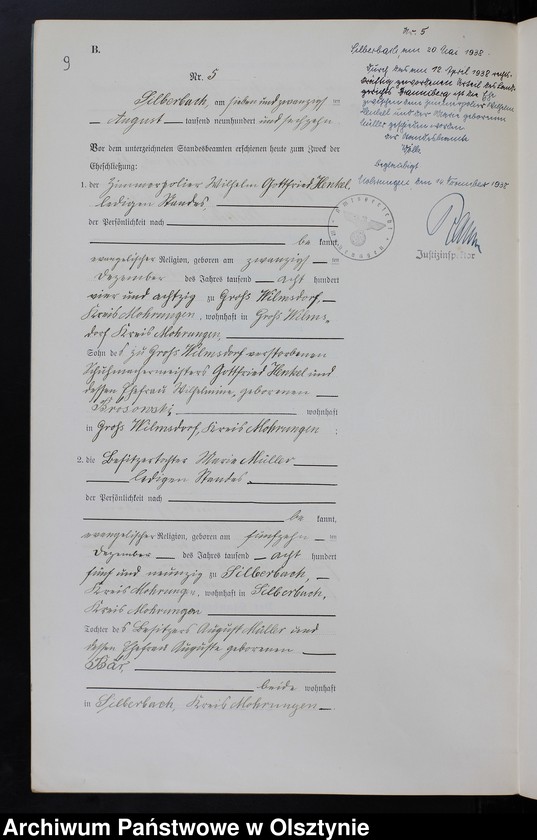 9
B.
Nr. 5
Silberbach, am sieben und zwanzigsten
August tausend neunhundert und sechzehn
Vor dem unterzeichneten Standesbeamten erschienen heute zum Zweck der
Eheschließung:
1. der Zimmerpolier Wilhelm Gottfried Henkel,
ledigen Standes,
der Persönlichkeit nach
be kannt,
evangelischer Religion, geboren am zwanzigsten
Dezember des Jahres tausend acht hundert
vier und achtzig zu Groß Wilmsdorf,
Kreis Mohrungen, wohnhaft in Groß Wilms-
dorf Kreis Mohrungen,
Sohn des zu Groß Wilmsdorf verstorbenen
Schuhmachermeisters Gottfried Henkel und
dessen Ehefrau Wilhelmine, geborenen
wohnhaft
in Groß Wilmsdorf, Kreis Mohrungen ;
2. die Besitzertochter Marie Müller
ledigen Standes,
der Persönlichkeit nach
be kannt,
evangelischer Religion, geboren am fünfzehnten
Dezember des Jahres tausend acht hundert
fünf und neunzig zu Silberbach,
Kreis Mohrungen, wohnhaft in Silberbach,
Kreis Mohrungen
Tochter des Besitzers August Müller und
dessen Ehefrau Auguste geborenen
Bär,
beide wohnhaft
in Silberbach, Kreis Mohrungen
Nr. 5
Silberbach, am 20. Mai 1938.
Durch das am 12. April 1938 rechts-
kräftig gewordenen Urteil des Land-
gerichts Braunsberg ist die Ehe
zwischen dem Zimmerpolier Wilhelm
Henkel und der Marie geborenen
Müller geschieden worden.
Der Standesbeamte
Beglaubigt
Mohrungen, den 1938
Justizinspektor
Archiwum Państwowe w Olsztynie